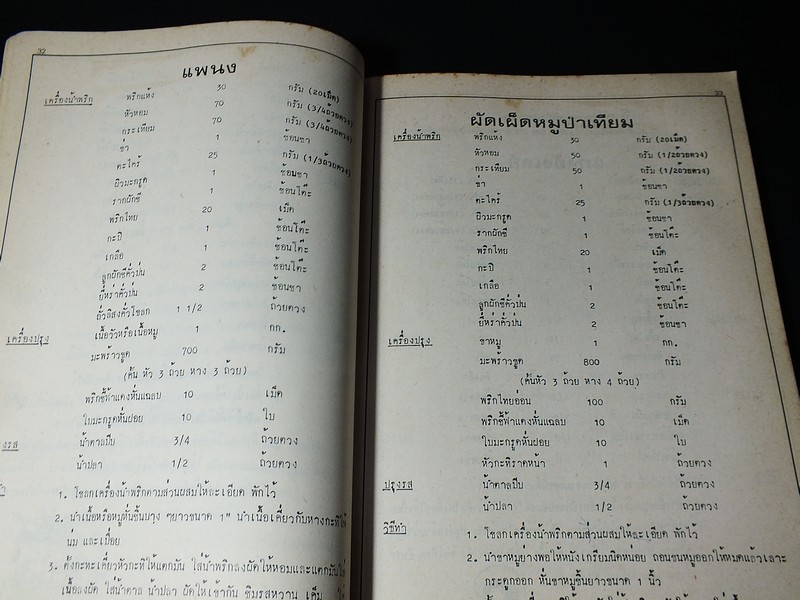 32
แพนง
เครื่องน้ำพริก พริกแห้ง 30 กรัม (20เม็ด)
หัวหอม 70 กรัม (3/4ถ้วยตวง)
กระเทียม 70 กรัม (3/4ถ้วยตวง)
ข่า 1 ช้อนชา
ตะไคร้ 25 กรัม (1/3ถ้วยตวง)
ผิวมะกรูด 1 ช้อนชา
รากผักชี 1 ช้อนโต๊ะ
พริกไทย 20 เม็ด
กะปิ 1 ช้อนโต๊ะ
เกลือ 1 ช้อนโต๊ะ
ลูกผักชีคั่วป่น 2 ช้อนโต๊ะ
ยี่หร่าคั่วป่น 2 ช้อนชา
ถั่วลิสงคั่วโขลก 1 1/2 ถ้วยตวง
เครื่องปรุง เนื้อวัวหรือเนื้อหมู 1 กก.
มะพร้าวขูด 700 กรัม
(คั้น หัว 3 ถ้วย หาง 3 ถ้วย)
พริกชี้ฟ้าแดงหั่นแฉลบ 10 เม็ด
ใบมะกรูดหั่นฝอย 10 ใบ
น้ำตาลปีบ 3/4 ถ้วยตวง
น้ำปลา 1/2 ถ้วยตวง
1. โขลกเครื่องน้ำพริกตามส่วนผสมให้ละเอียด พักไว้
2. นำเนื้อหรือหมูหั่นชิ้นบาง ๆยาวขนาด 1" นำเนื้อเคี่ยวกับหางกะทิให้
นุ่ม และเปื่อย
3. ตั้งกะทะเคี่ยวหัวกะทิให้แตกมัน ใส่น้ำพริกลงผัดให้หอมและแตกมันใส่
เนื้อลงผัด ใส่น้ำตาล น้ำปลา ผัดให้เข้ากัน ชิมรสหวาน เค็ม
33
ผัดเผ็ดหมูป่าเทียม
เครื่องน้ำพริก พริกแห้ง 30 กรัม (20เม็ด)
หัวหอม 50 กรัม (1/2ถ้วยตวง)
กระเทียม 50 กรัม (1/2ถ้วยตวง)
ข่า 1 ช้อนชา
ตะไคร้ 25 กรัม (1/3ถ้วยตวง)
ผิวมะกรูด 1 ช้อนชา
รากผักชี 1 ช้อนโต๊ะ
พริกไทย 20 เม็ด
กะปิ 1 ช้อนโต๊ะ
เกลือ 1 ช้อนโต๊ะ
ลูกผักชีคั่วป่น 2 ช้อนโต๊ะ
ยี่หร่าคั่วป่น 2 ช้อนชา
เครื่องปรุง ขาหมู 1 กก.
มะพร้าวขูด 800 กรัม
(คั้นหัว 3 ถ้วย หาง 4 ถ้วย)
พริกไทยอ่อน 100 กรัม
พริกชี้ฟ้าแดงหั่นแฉลบ 10 เม็ด
ใบมะกรูดหั่นฝอย 10 ใบ
หัวกะทิราดหน้า 1 ถ้วยตวง
ปรุงรส น้ำตาลปีบ 3/4 ถ้วยตวง
น้ำปลา 1/2 ถ้วยตวง
วิธีทำ 1. โขลกเครื่องน้ำพริกตามส่วนผสมให้ละเอียด พักไว้
2. นำขาหมูย่างพอให้หนังเกรียมนิดหน่อย ถอนขนหมูออกให้หมดแล้วเลาะ
กระดูกออก หั่นขาหมูชิ้นยาวขนาด 1 นิ้ว